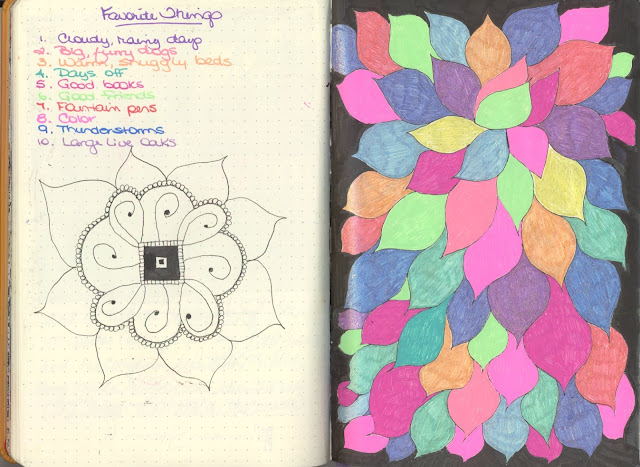 Favorite Things
1. Cloudy, rainy days
2. Big, furry dogs
3. Warm, snuggly beds
4. Days off
5. Good books
6. Good friends
7. Fountain pens
8. Color
9. Thunderstorms
10. Large Live Oaks